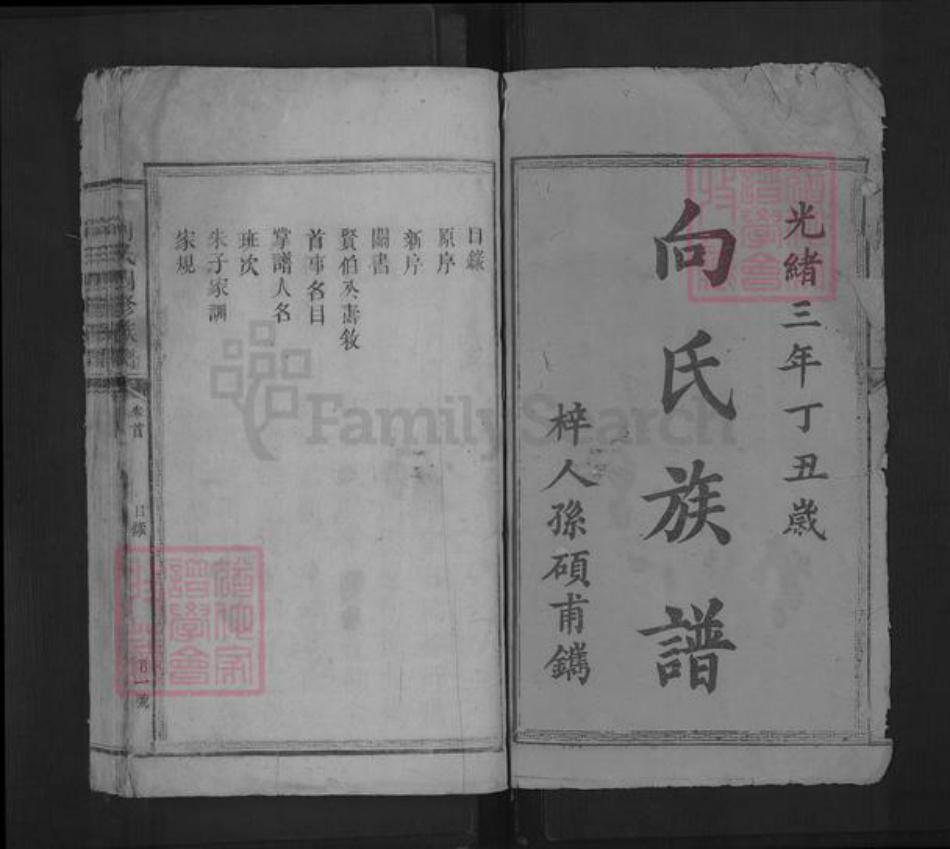 光緒三年丁丑歲
向氏族譜
梓人孫碩甫鐫
目錄
原序
新序
關書
賢伯公書敘
首事名目
掌譜人名
班次
朱子家訓
家規
卷首
目錄
FamilySearch
譜學會
譜學會